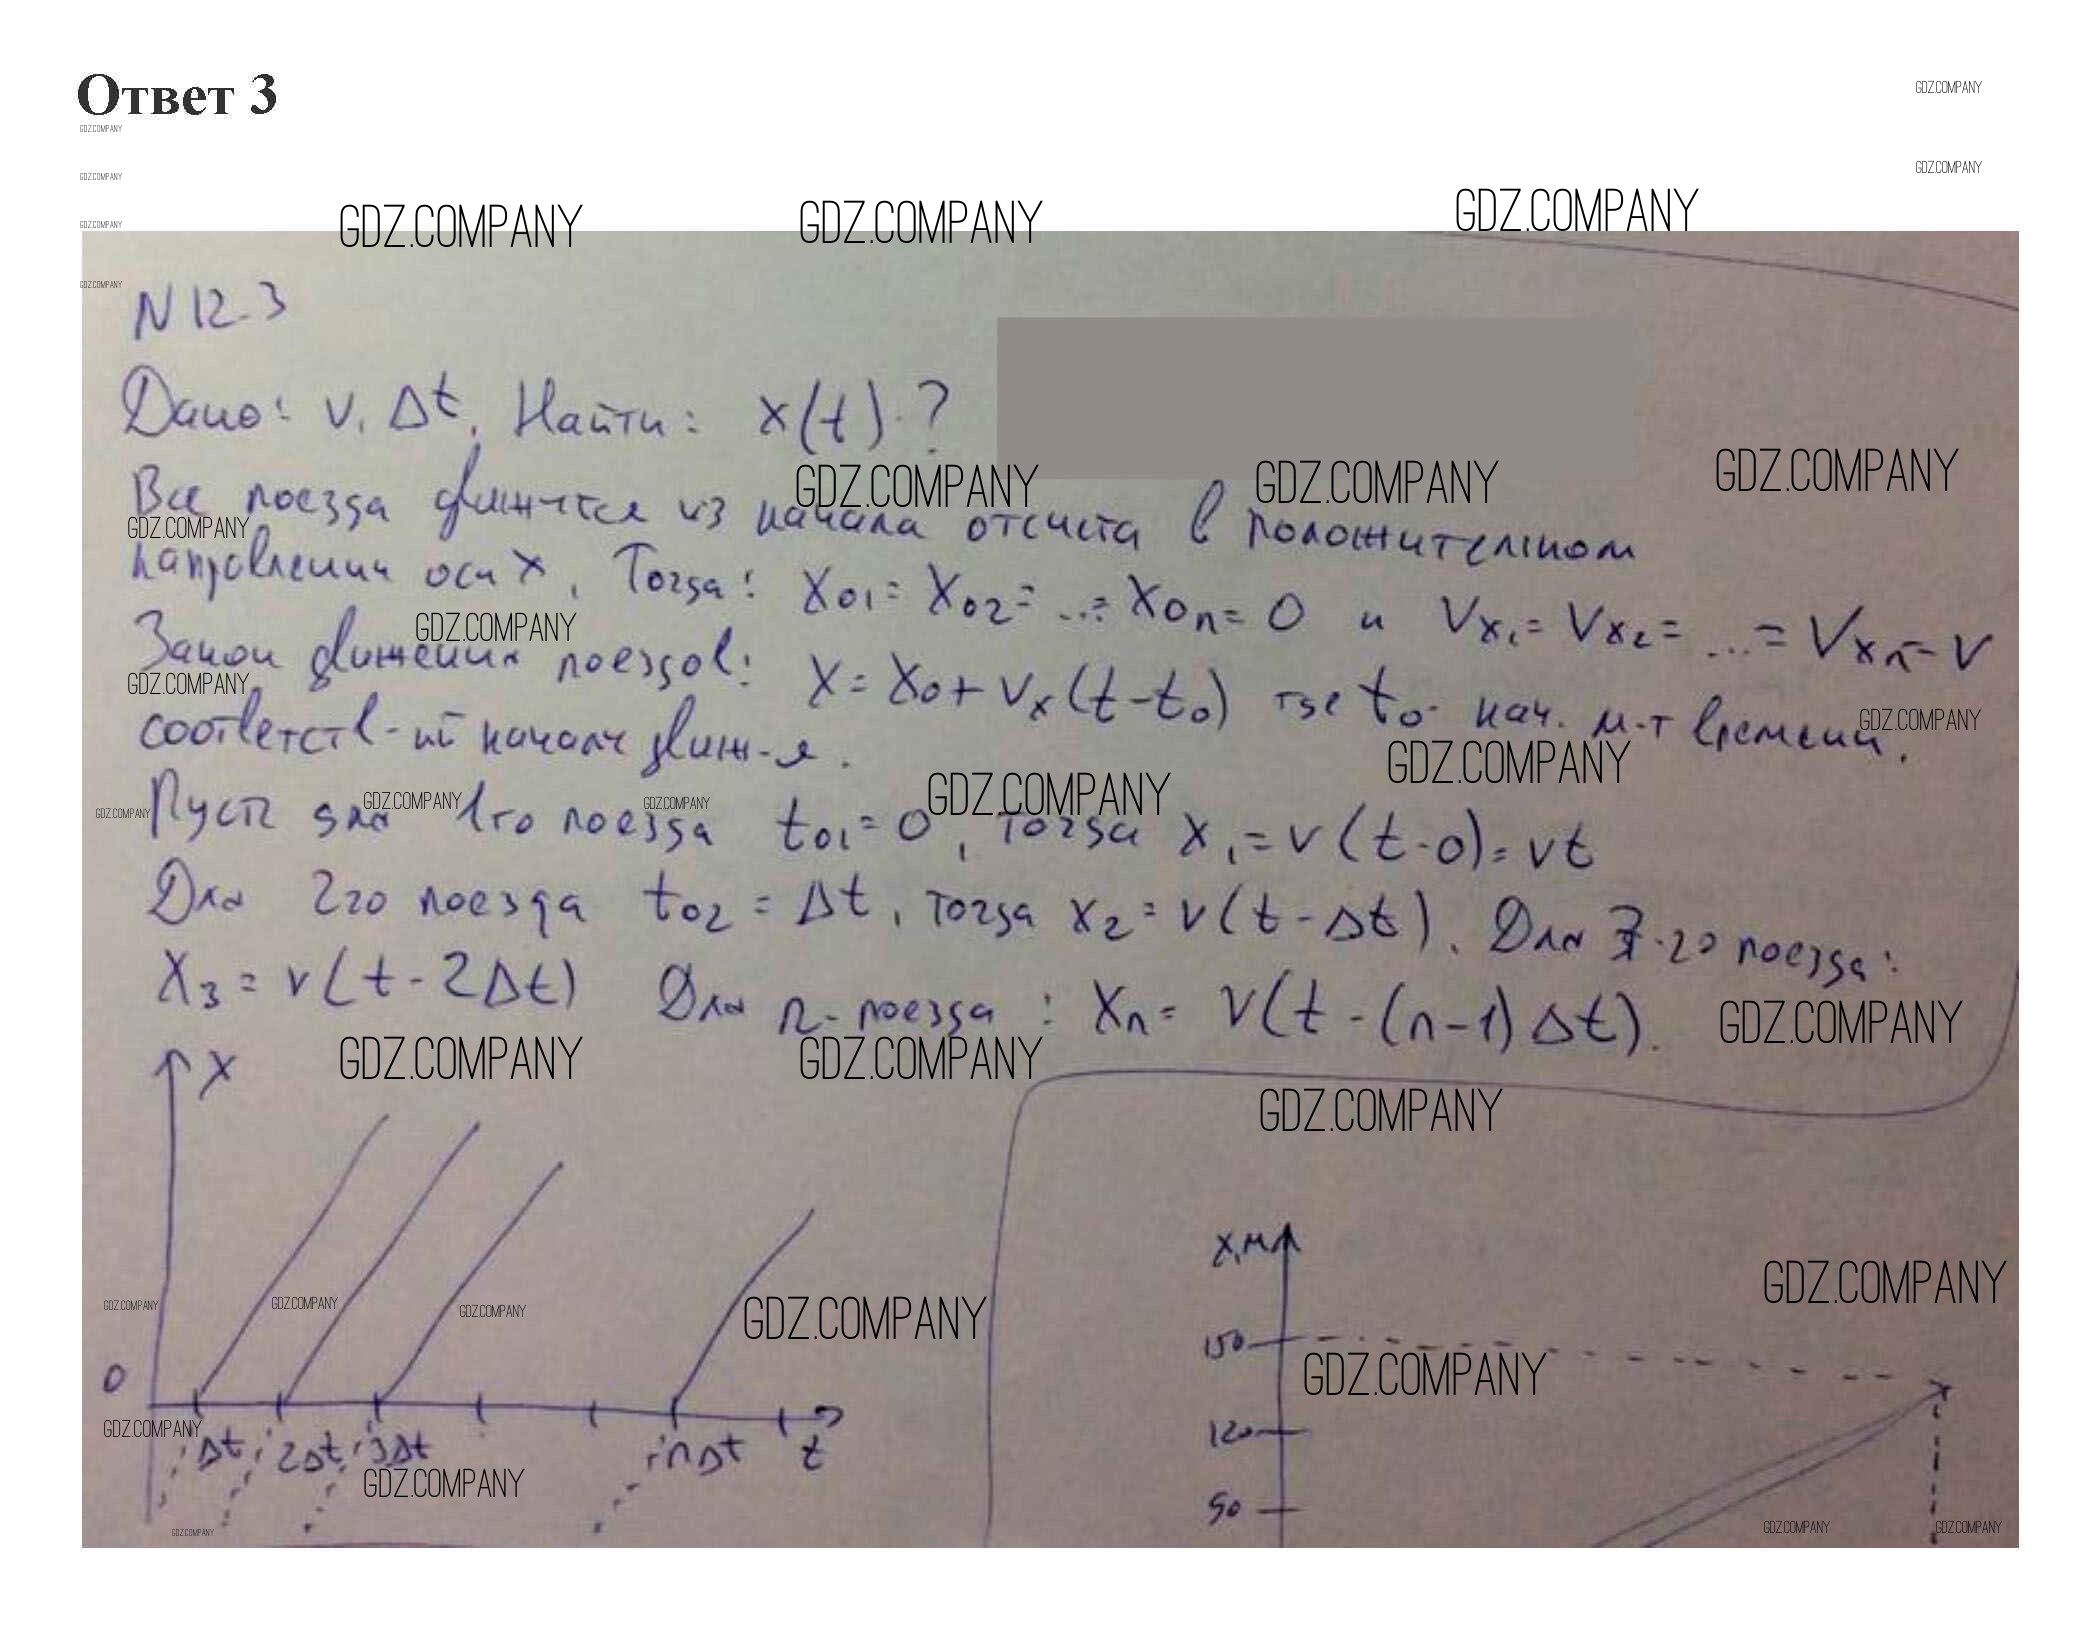 Ответ 3
N 12.3
Дано: v, Δt. Найти: x(t)-?
Все поезда движутся из начала отсчета в положительном
направлении оси x, Тогда: x₀₁ = x₀₂ = ... = x₀ₙ = 0 и Vx₁ = Vx₂ = ... = Vxₙ = V
Закон движения поездов: x = x₀ + vₓ(t - t₀) где t₀ - нач. м-т времени,
соответств-ий началу движ-я.
Пусть для 1го поезда t₀₁ = 0, тогда x₁ = v(t - 0) = vt
Для 2го поезда t₀₂ = Δt, тогда x₂ = v(t - Δt). Для 3-го поезда:
x₃ = v(t - 2Δt) Для n-поезда: xₙ = v(t - (n-1)Δt).
x
0
Δt 2Δt 3Δt nΔt t
x,м
150
120
90
GDZ.COMPANY